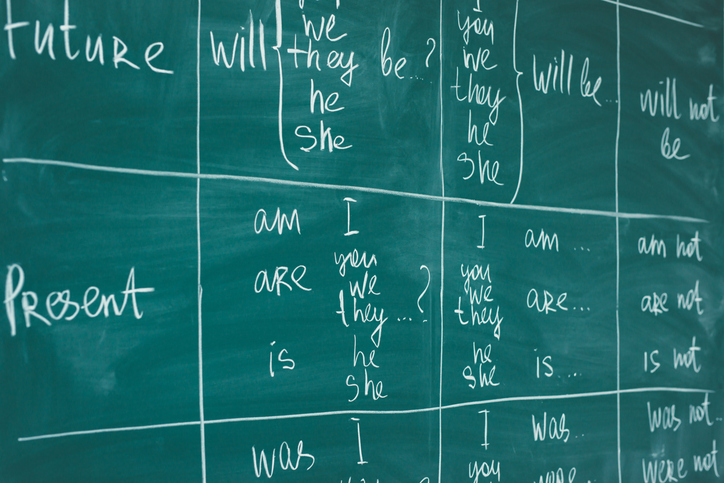 Future will you we they he she be...?
I you we they he she will be...
will not be
Present
am I
are you we they...?
is he she
I am ...
you we they are...
he she is....
am not
are not
is not
was I
I was..
you were...
was not..
were not